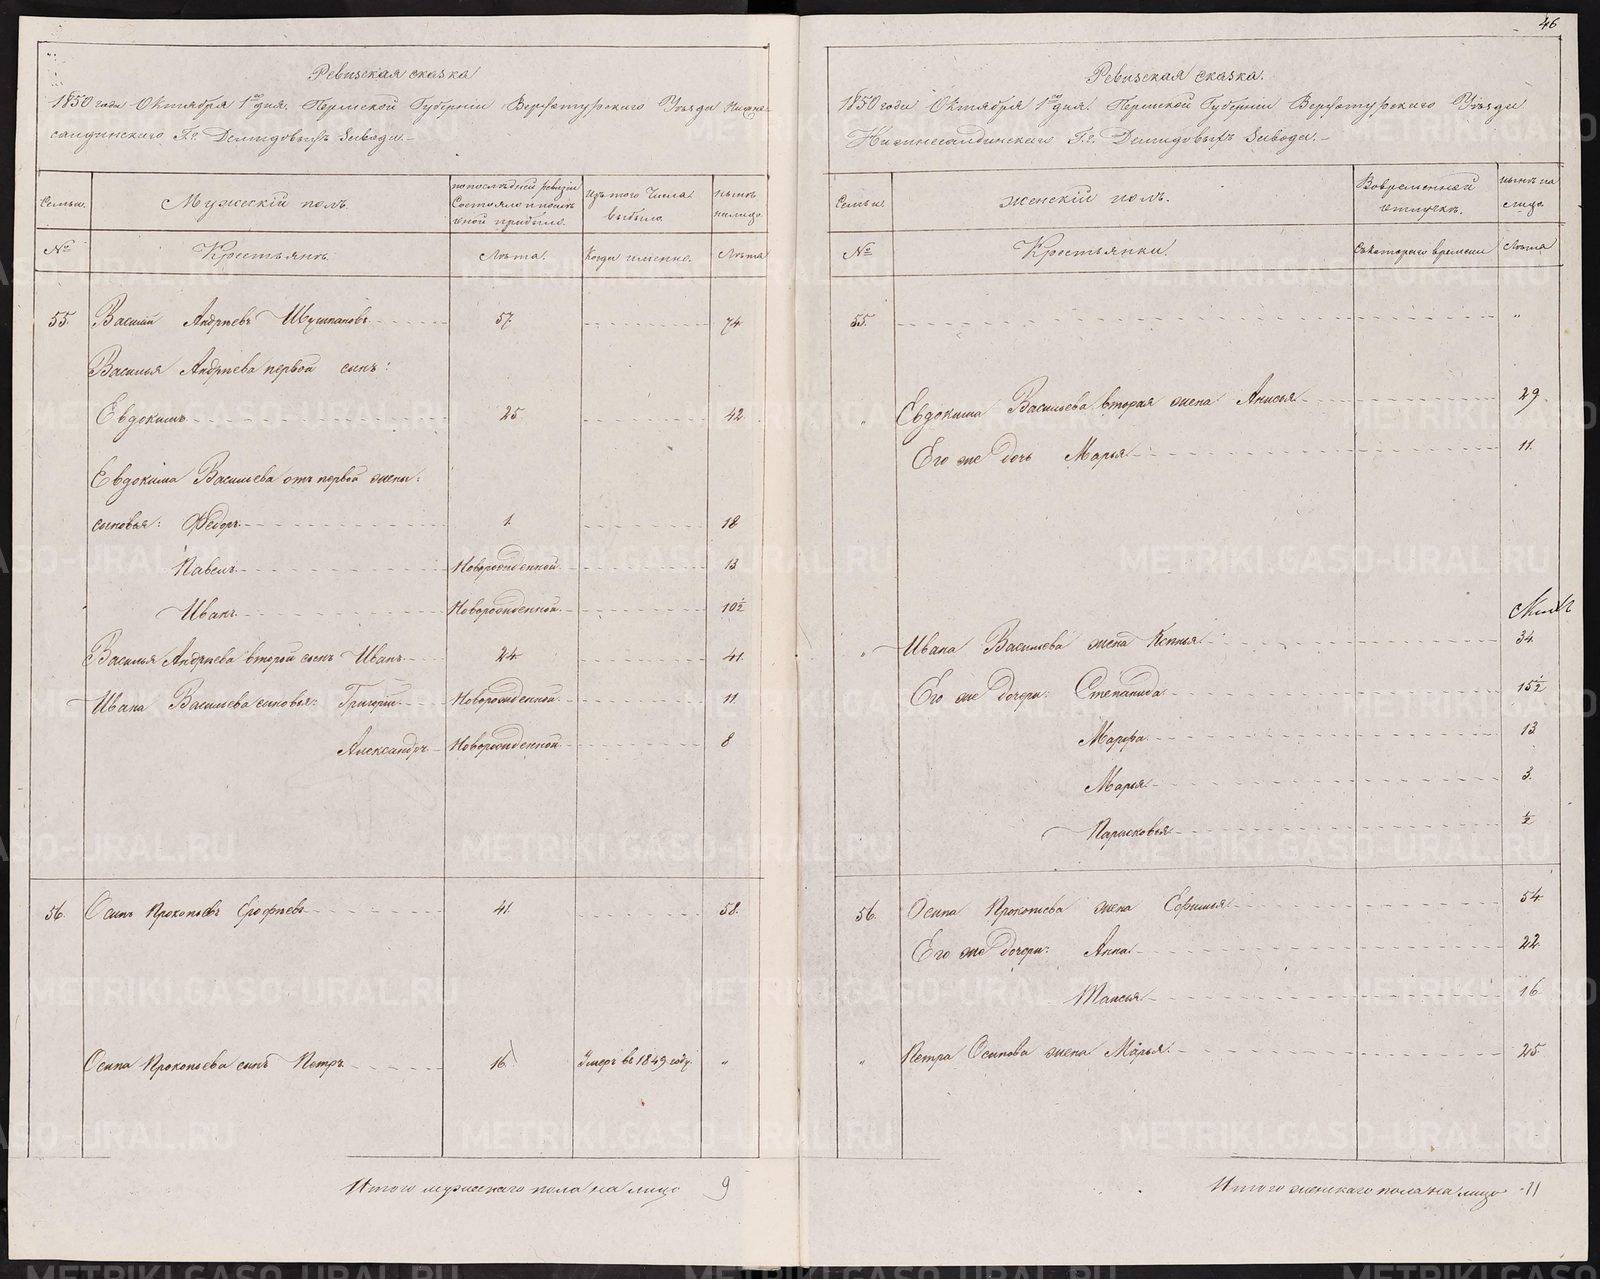 Ревизская сказка
1850 года Октября 1го дня. Пермской Губернии Верхотурского Уѣзда Нижне-
салдинского Гг. Демидовыхъ Завода.
Семьи. Мужескій полъ. по последней ревизіи Состояло и послѣ оной прибыло. Изъ того Числа выбыло. нынѣ на лицо.
№ Крестьянъ. Лѣта. Когда именно. Лѣта
55. Василій Андреевъ Шушпановъ 57. 74.
Василья Андреева первой сынъ:
Евдокимъ 25 42.
Евдокима Васильева отъ первой жены:
сыновья: Федоръ 1. 18
Павелъ Новорожденной 13
Иванъ Новорожденной 10½
Василья Андреева второй сынъ Иванъ 24 41.
Ивана Васильева сыновья: Григорій Новорожденной 11
Александръ Новорожденной 8
56. Осипъ Прокопьевъ Ерофѣевъ 41. 58.
Осипа Прокопьева сынъ Петръ 16. Умеръ въ 1849 году. "
Итого мужескаго пола на лицо 9
46
Ревизская сказка.
1850 года Октября 1го дня. Пермской Губерніи Верхотурского Уѣзда
Нижнесалдинского Гг. Демидовыхъ Завода.
Семьи. женскій полъ. Вовременной отлучкѣ. нынѣ на лицо.
№ Крестьянки. Съкотораго времени Лѣта
55. "
" Евдокима Васильева вторая жена Анисья 29.
Его же дочь Марья 11.
" Ивана Васильева жена Ксенья 34.
Его же дочери: Степанида 15½
Марфа 13
Марья 3.
Парасковья ½
56. Осипа Прокопьева жена Ефимья 54
Его же дочери: Анна 22.
Таисья 16.
" Петра Осипова жена Марья 25.
Итого женскаго пола на лицо 11
METRIKI.GASO-URAL.RU